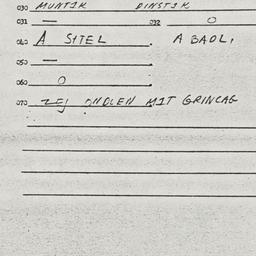 030 MUNTIK DINSTIK
031 — 032 O
040 A SITEL A BADL,
050 —
060 O
070 MIT GRINCAG